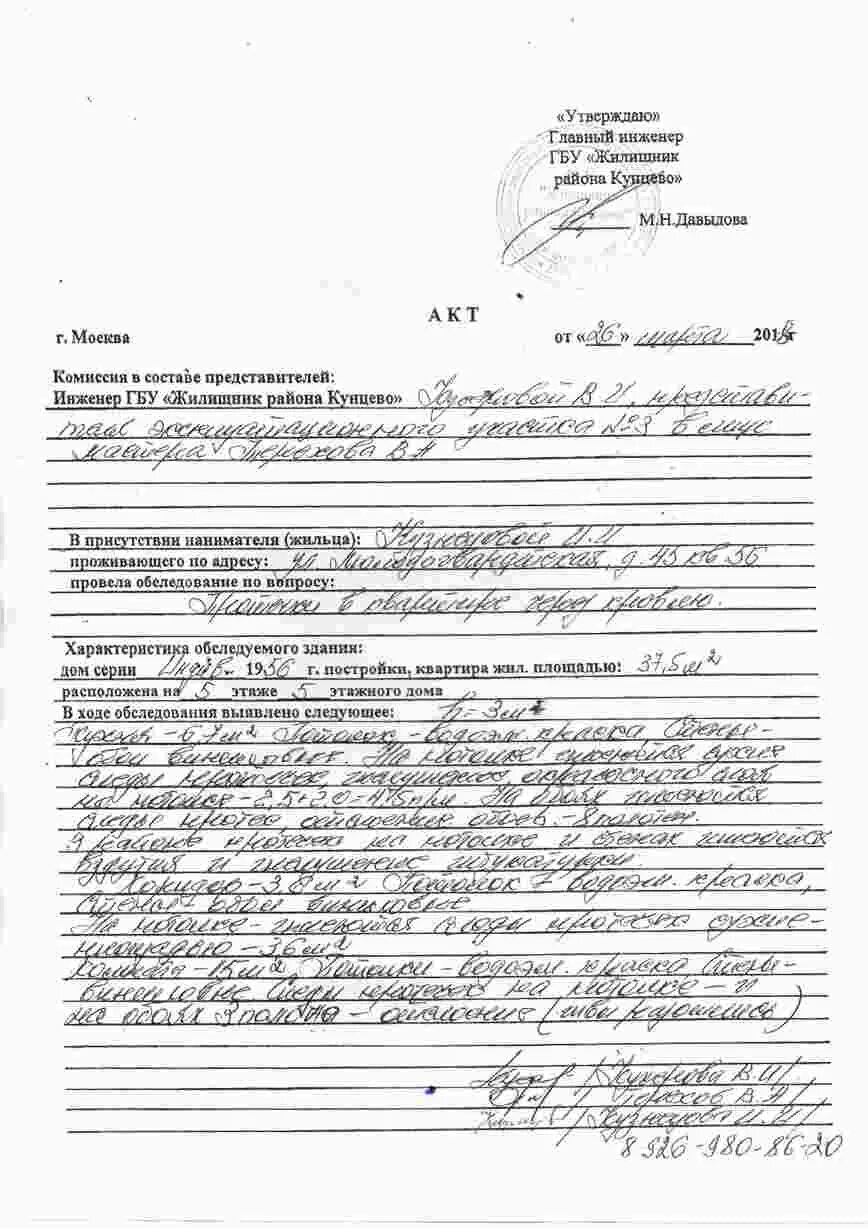 «Утверждаю»
Главный инженер
ГБУ «Жилищник
района Кунцево»
М.Н.Давыдова
АКТ
г. Москва от «26» марта 201
Комиссия в составе представителей:
Инженер ГБУ «Жилищник района Кунцево» В И, представи-
теля эксплуатационного участка №3 в лице
мастера Терехова В А
В присутствии нанимателя (жильца): Кузнецовой И.И
проживающего по адресу: ул Молодогвардейская, д. 45 кв 56
провела обследование по вопросу:
Протечки в квартире через кровлю.
Характеристика обследуемого здания:
дом серии Индив. 1956 г. постройки, квартира жил. площадью: 37,5 м²
расположена на 5 этаже 5 этажного дома
В ходе обследования выявлено следующее: h = 3 м
Кухня - 6,7 м² Потолок - водоэм. краска, Стены-
обои виниловые. На потолке имеются сухие
следы протечек, окрасочного слоя
на потолке - 2,5 + 2,0 = 4,5 п/м. На обоях имеются
следы протеч, отслоение обоев -
В районе протечек на потолке и стенах имеются
вздутия и нарушение штукатурки.
Коридор - 3,8 м² Потолок - водоэм. краска,
Стены - обои виниловые
На потолке имеются следы протечек сухие-
площадью - 3,6 м²
Комната - 15 м², Потолки - водоэм. краска, Стены-
виниловые. Следы протечек на потолке - и
на обоях 3 полотна - отслоение (швы разошлись)
В.И/
/ Терехов В.А/
/ Кузнецова И.И/
8 926-980-86-20